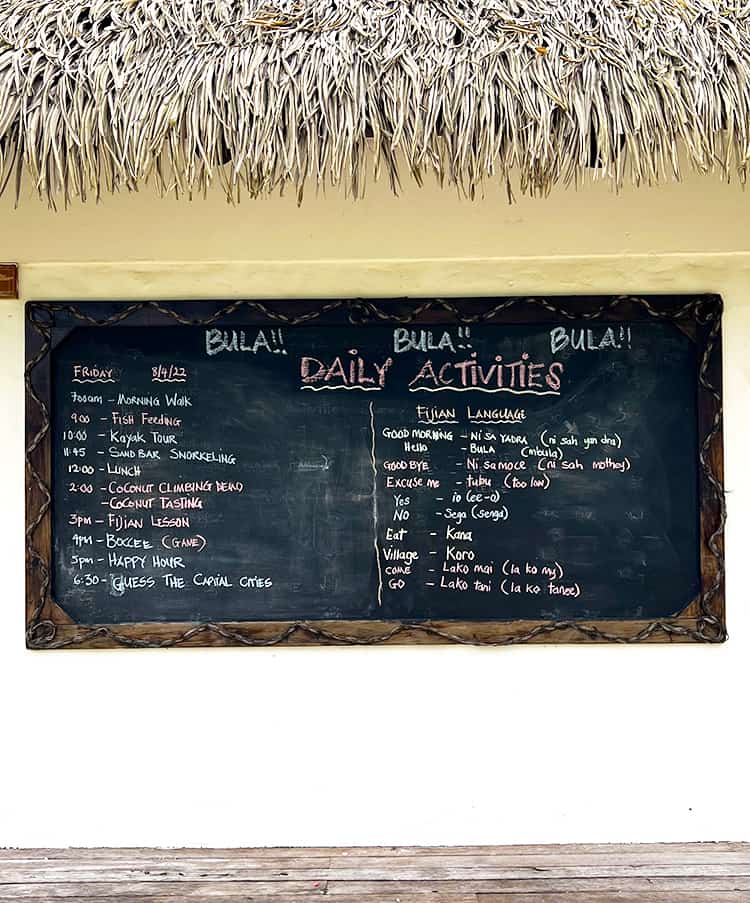 BULA!! BULA!! BULA!!
DAILY ACTIVITIES
FRIDAY 8/4/22
7:00am - MORNING WALK
9:00 - FISH FEEDING
10:00 - KAYAK TOUR
11:45 - SANDBAR SNORKELING
12:00 - LUNCH
2:00 - COCONUT CLIMBING DEMO
- COCONUT TASTING
3pm - FIJIAN LESSON
4pm - BOCCEE (GAME)
5pm - HAPPY HOUR
6:30 - GUESS THE CAPITAL CITIES
FIJIAN LANGUAGE
GOOD MORNING - NI SA YADRA (ni sah yan dra)
Hello - BULA (mbula)
GOOD BYE - Ni sa moce (ni sah mothey)
EXCUSE ME - tulou (too low)
Yes - io (ee-o)
NO - Sega (senga)
Eat - Kana
Village - Koro
COME - Lako mai (la ko my)
GO - Lako tani (la ko tanee)